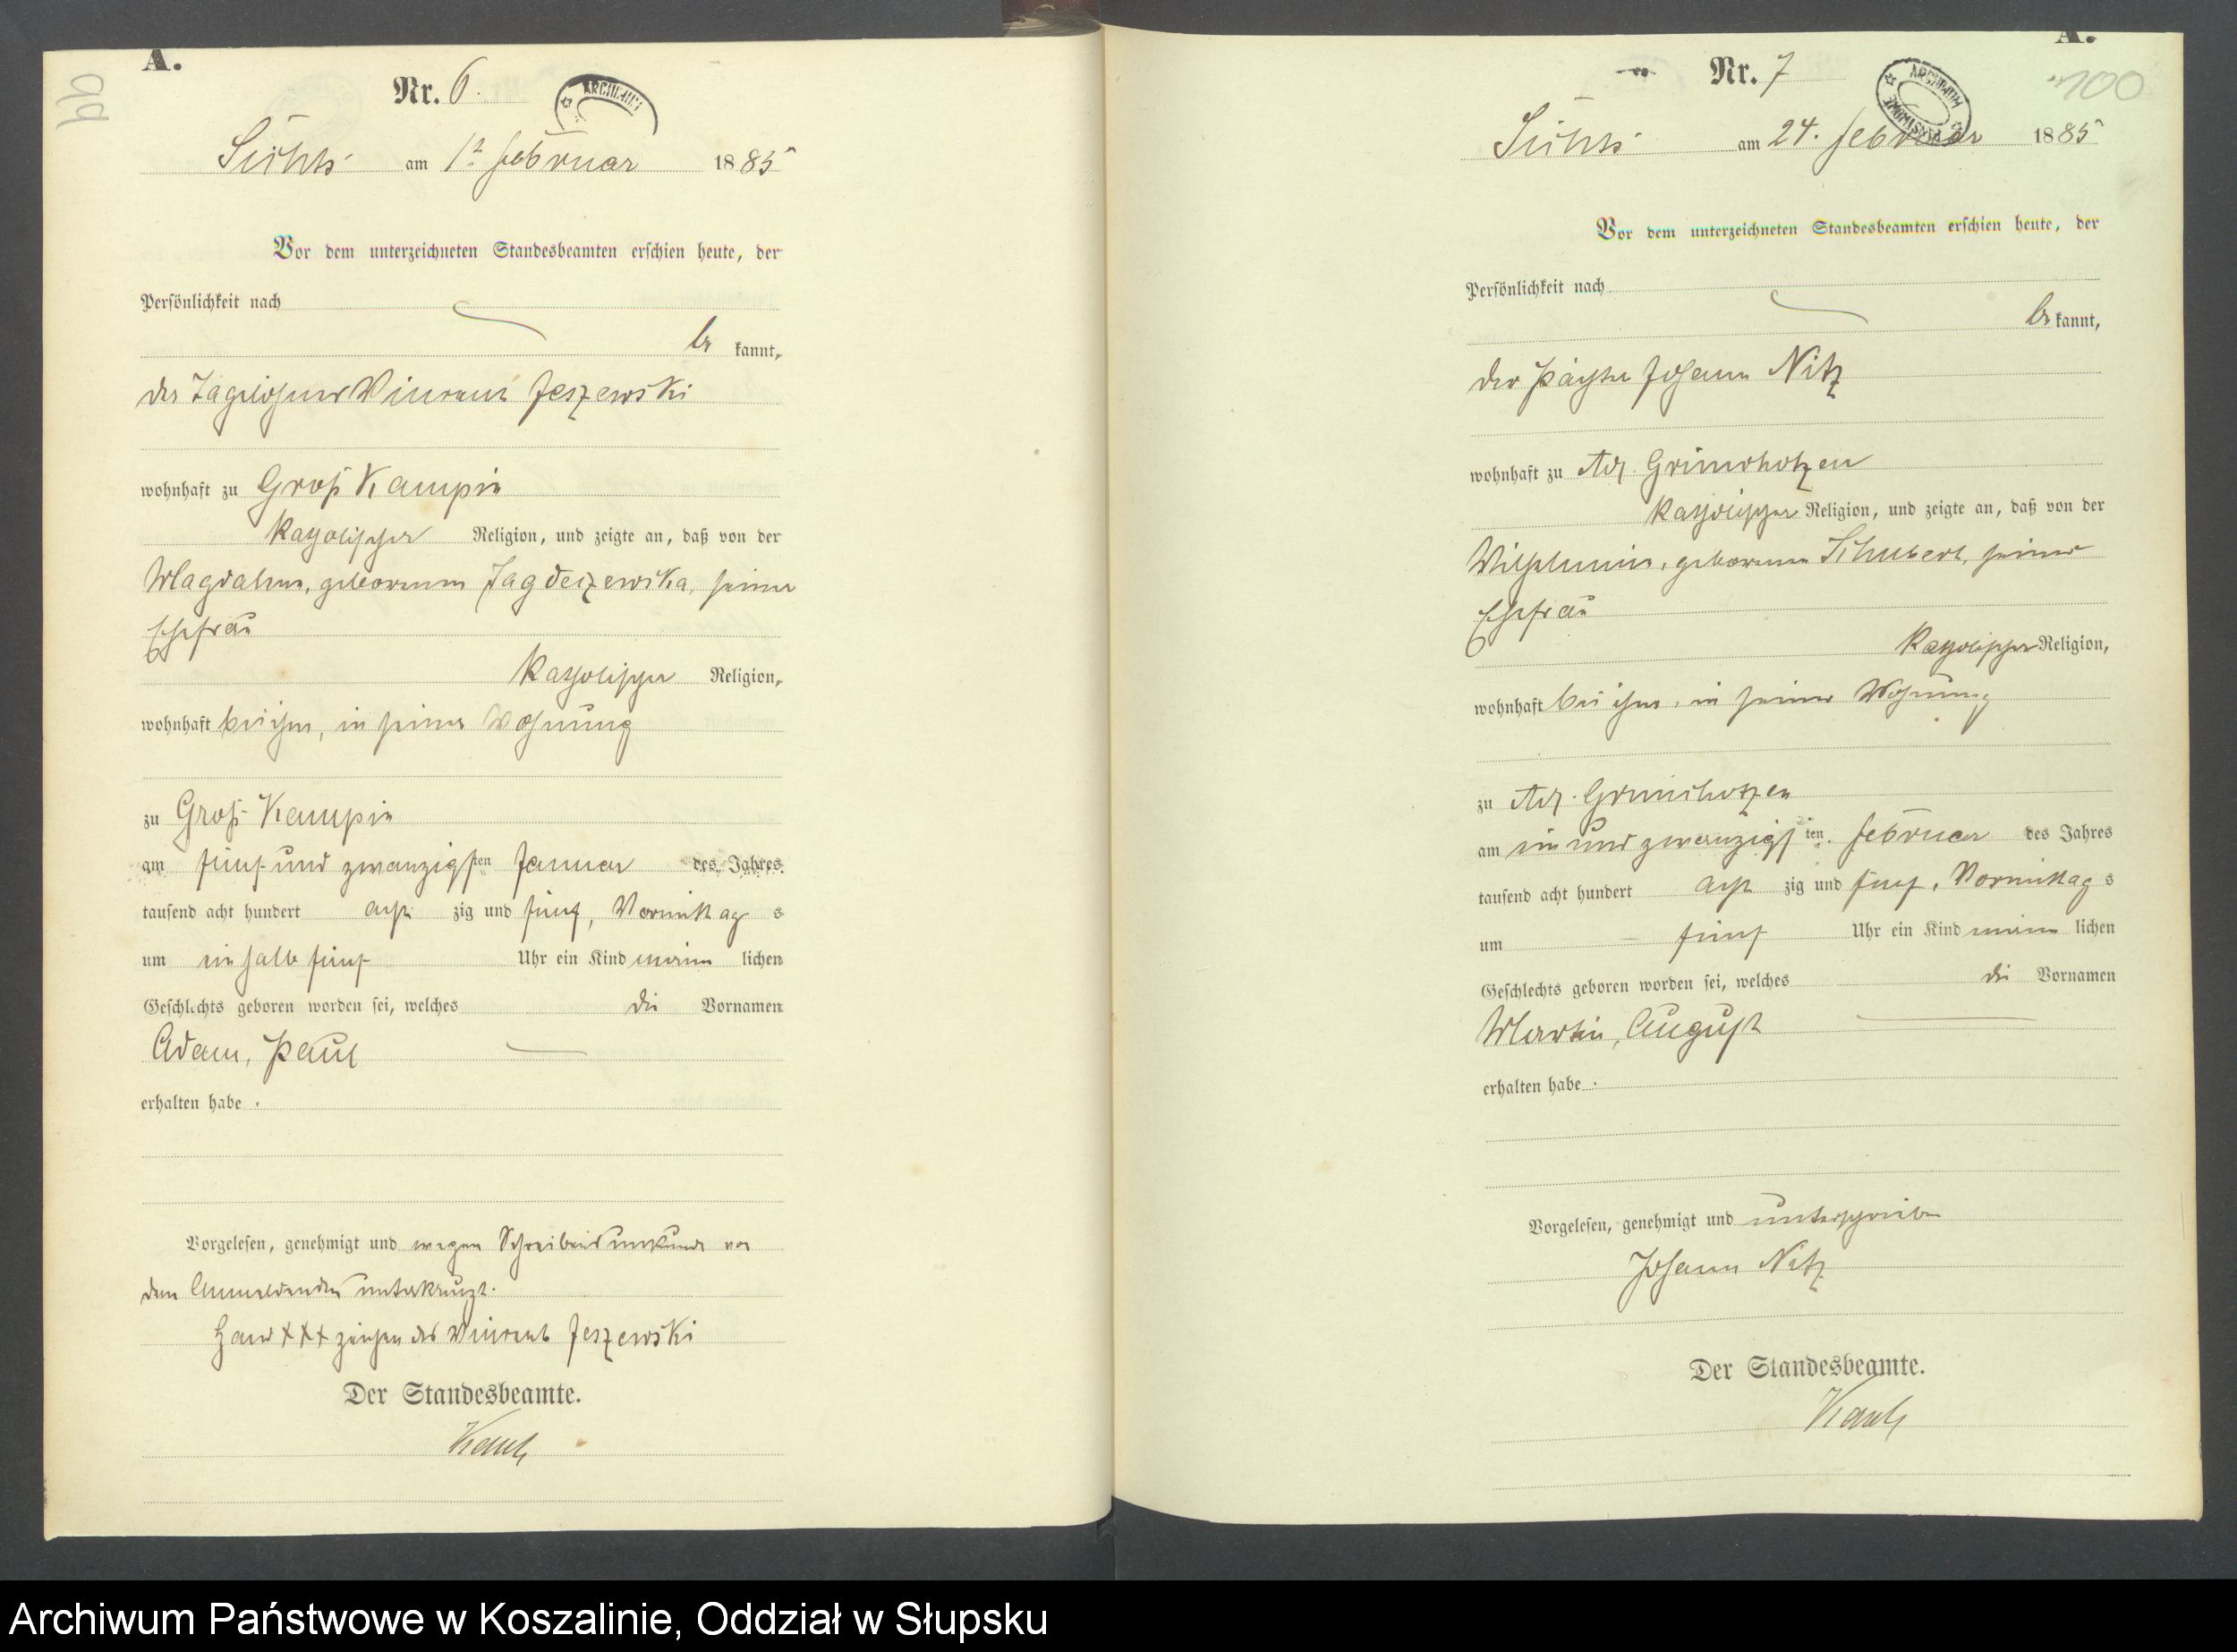 A.
Nr. 6.
ARCHIWUM
am 1t Februar 1885
Vor dem unterzeichneten Standesbeamten erschien heute, der
Persönlichkeit nach
be kannt,
der Tagelöhner Vincent Jeszewski
wohnhaft zu Groß Kampin
katholischer Religion, und zeigte an, daß von der
Magdalena, geborenen Jagdeszewska, seiner
Ehefrau
katholischer Religion,
wohnhaft bei ihm, in seiner Wohnung
zu Groß-Kampin
am fünf und zwanzigsten Januar des Jahres
tausend acht hundert acht zig und fünf, Vormittag s
um ein halb fünf Uhr ein Kind männ lichen
Geschlechts geboren worden sei, welches die Vornamen
Adam, Paul
erhalten habe.
Vorgelesen, genehmigt und wegen Schreibensunkunde von
dem Anmeldenden unterkreuzt.
Hand XXX zeichen des Vincent Jeszewski
Der Standesbeamte.
A.
Nr. 7
100
ARCHIWUM
am 24. Februar 1885
Vor dem unterzeichneten Standesbeamten erschien heute, der
Persönlichkeit nach
be kannt,
der Pächter Johann Nitz
wohnhaft zu Adl.
katholischer Religion, und zeigte an, daß von der
Wilhelmine, geborenen Schubert, seiner
Ehefrau
katholischer Religion,
wohnhaft bei ihm, in seiner Wohnung
zu Adl.
am ein und zwanzigsten Februar des Jahres
tausend acht hundert acht zig und fünf, Vormittag s
um fünf Uhr ein Kind männ lichen
Geschlechts geboren worden sei, welches die Vornamen
Martin, August
erhalten habe.
Vorgelesen, genehmigt und unterschrieben
Johann Nitz
Der Standesbeamte.
Archiwum Państwowe w Koszalinie, Oddział w Słupsku